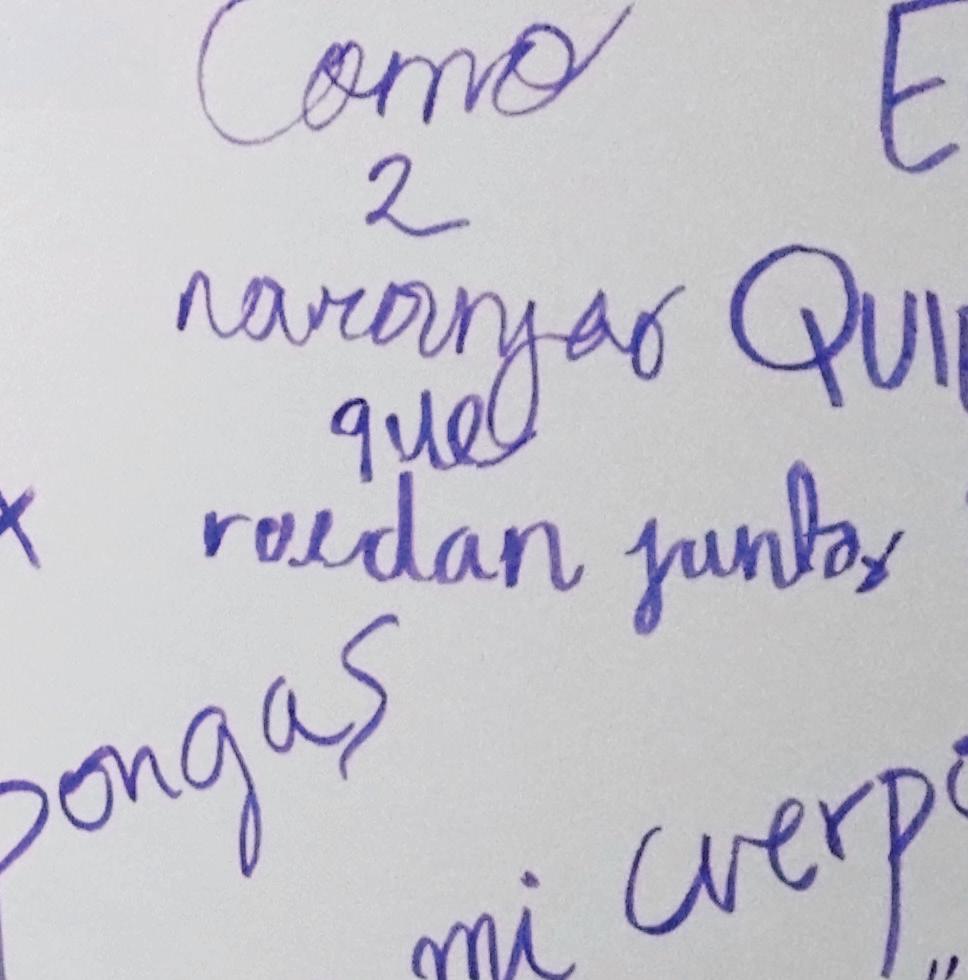 Como
2
naranjas
que
ruedan juntas
pongas
mi cuerpo